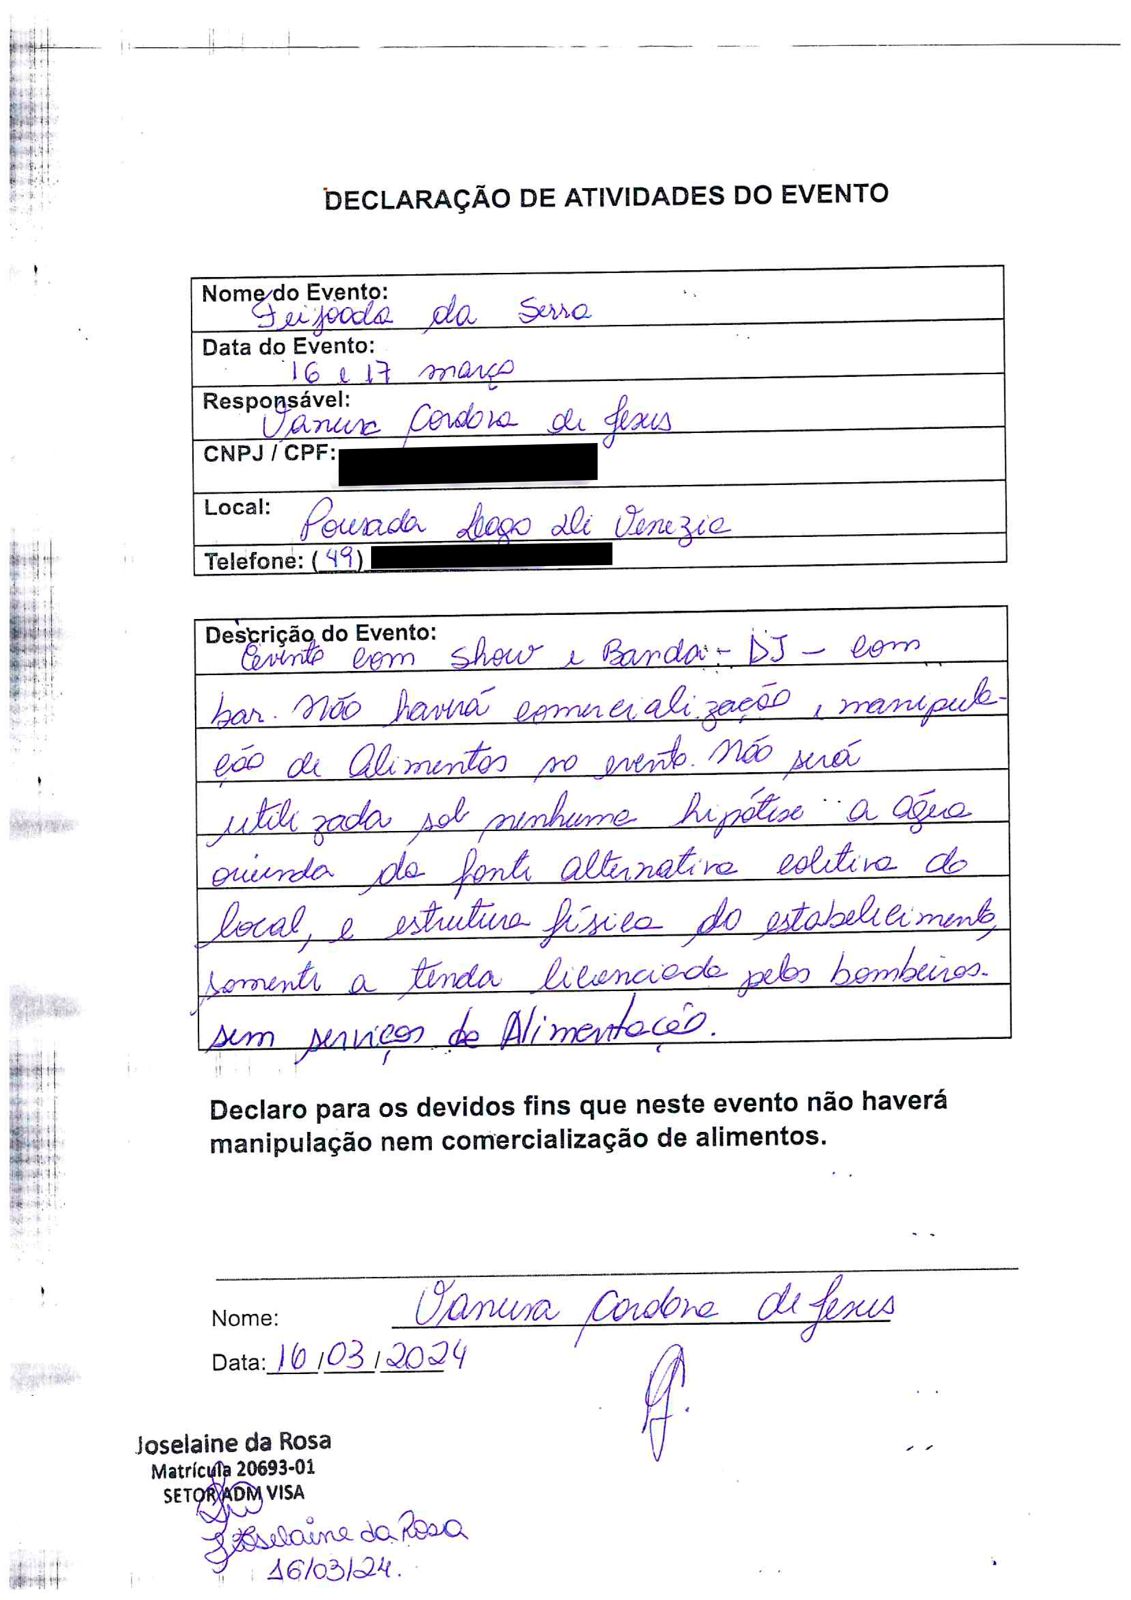 DECLARAÇÃO DE ATIVIDADES DO EVENTO
Nome do Evento:
Feijoada da Serra
Data do Evento:
16 e 17 março
Responsável:
Vanusa Cordova de Jesus
CNPJ / CPF:
Local: Pousada Lago di Venezia
Telefone: (49)
Descrição do Evento:
Evento com show e Banda - DJ - com
bar. Não haverá comercialização e manipula-
ção de Alimentos no evento. Não será
utilizada sob nenhuma hipótese a água
oriunda da fonte alternativa coletiva do
local, e estrutura física do estabelecimento,
somente a tenda licenciada pelos bombeiros.
sem serviços de Alimentação.
Declaro para os devidos fins que neste evento não haverá
manipulação nem comercialização de alimentos.
Nome: Vanusa Cordova de Jesus
Data: 16/03/2024
Joselaine da Rosa
Matrícula 20693-01
SETOR ADM VISA
Joselaine da Rosa
16/03/24.